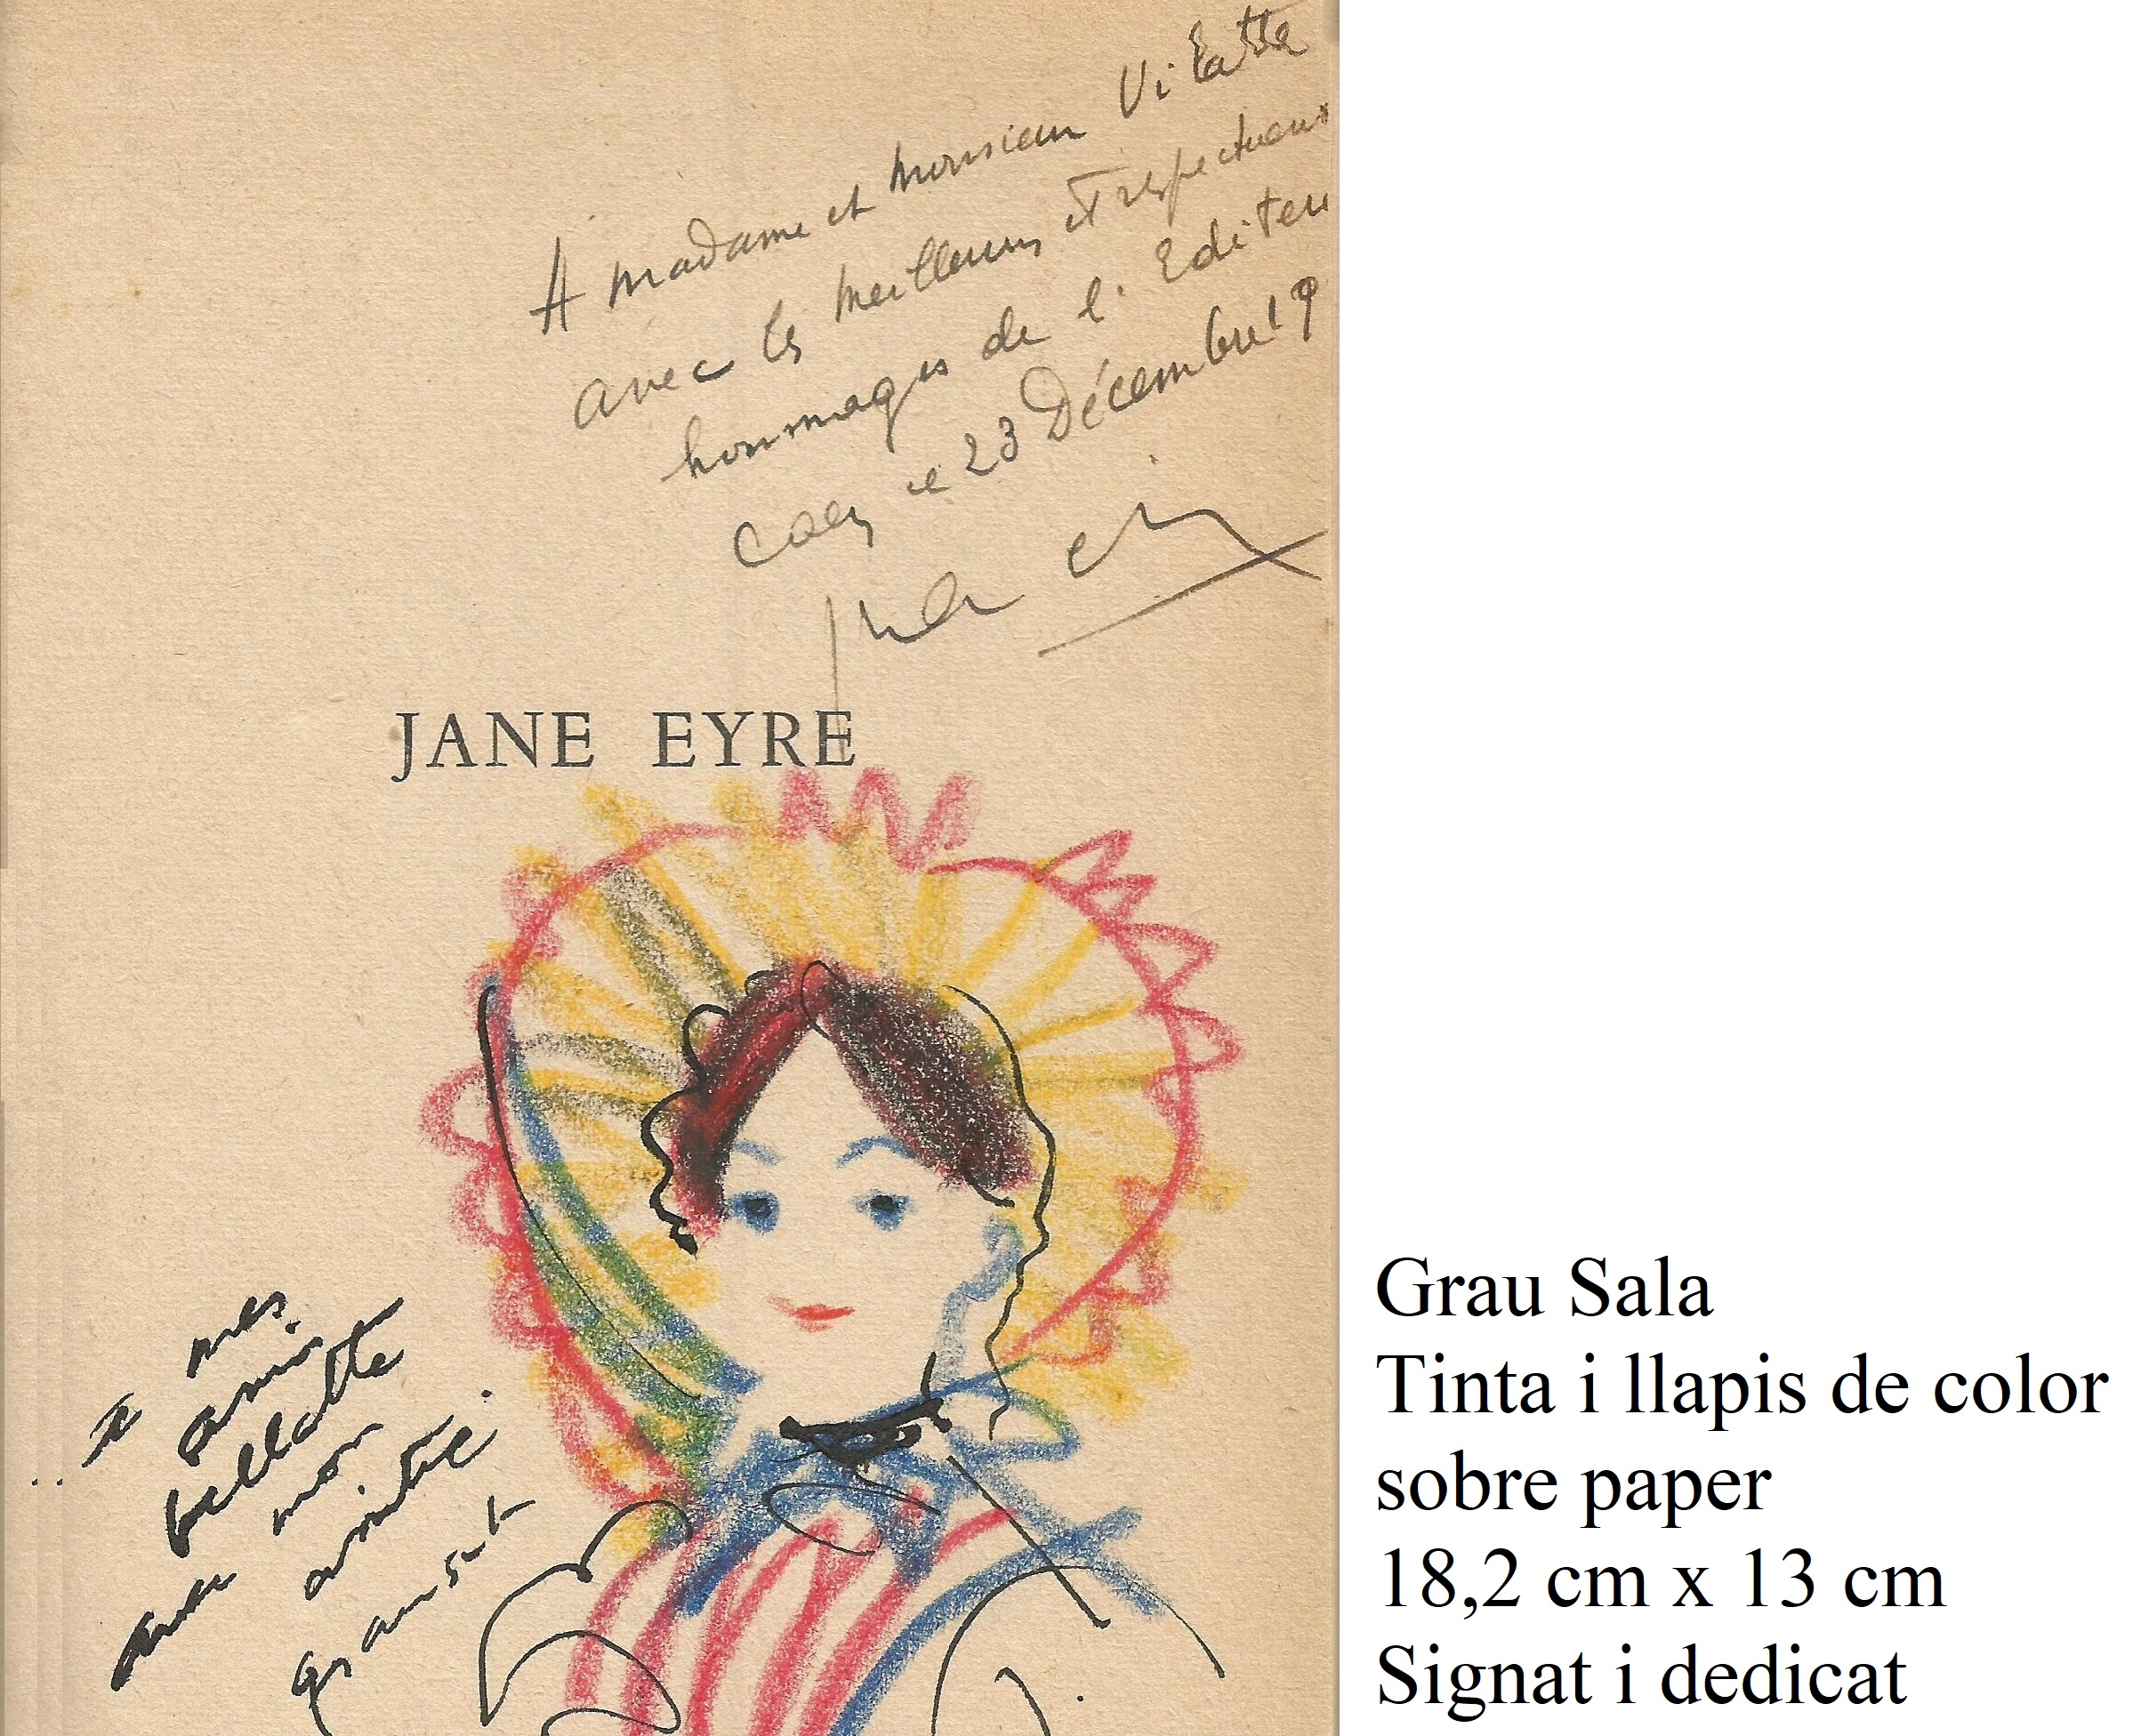 A madame et monsieur Vilatte
avec les meilleurs et respectueux
hommages de l'Editeu
Caen le 23 Décembre 19
JANE EYRE
à mes
amis
Villatte
avec mon
amitié.
Grau Sala
Grau Sala
Tinta i llapis de color
sobre paper
18,2 cm x 13 cm
Signat i dedicat